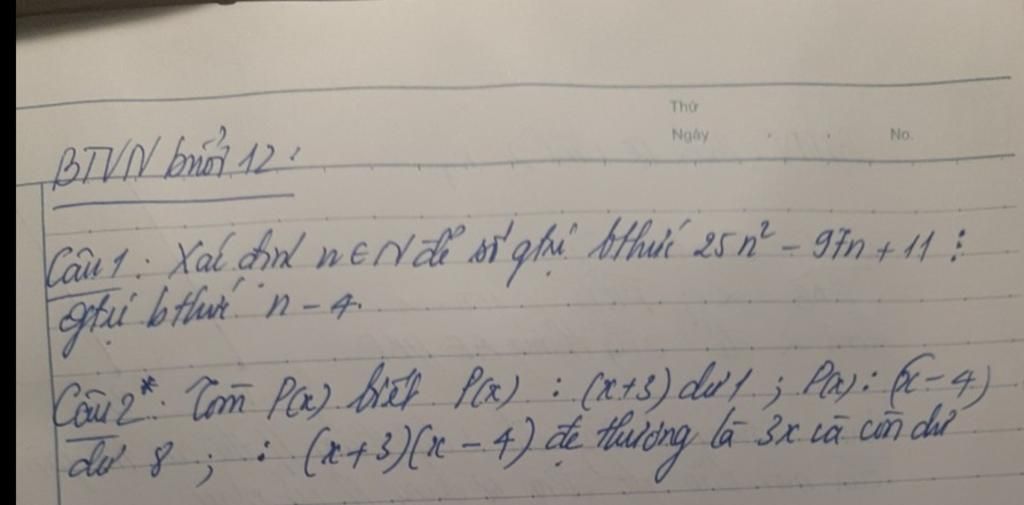 Thứ
Ngày No.
BTVN buổi 12:
Câu 1: Xác định n ∈ N để số giá trị bthức 25n² - 97n + 11 ⋮
giá trị bthức n - 4.
Câu 2*: Tìm P(x) biết P(x) : (x+3) dư 1 ; P(x) : (x-4)
dư 8 ; : (x+3)(x-4) đc thương là 3x và còn dư